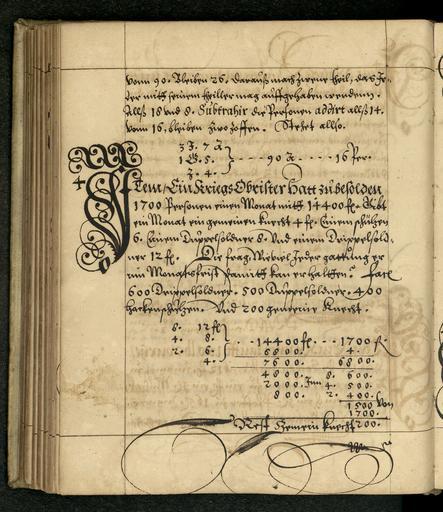 vonn 90. Bleiben 26. darauß mach zwene theil, das Je-
der mitt seinen theiller mag auffgehaben werdenn.
Allß 18 und 8. Subtrahir die Personen addirt allß 14.
vom 16. bleiben zwo zoffen. Stehet allso.
3 J. 7 A
1 G. 5. } .... 90 A .... 16 Per.
2. 4.
Item, Ein Kriegs Obrister hatt zu besolden
1700 Personen einen Monat mitt 14400 fl. Gibt
ein Monat ein gemeinen Knecht 4 fl. Einem schützen
6. Einem Duppelsöldner 8. Und einem Drippelsöld-
ner 12 fl. Die frag Wieviel Jeder gattung er
ein Monatsfrist damitt kan erhaltten? facit
600 Drippelsöldner. 500 Duppelsöldner. 400
hackenschützen. Und 200 gemeine Knecht.
8. 12 fl
4. 8. } ... 14400 fl. ... 1700
2. 6. 6800. 4.
4. 7600. 6800.
4800. 8. 600.
2000. Inn 4. 500.
800. 2. 400.
1500 von
1700.
Rest Gemein Knecht 200.